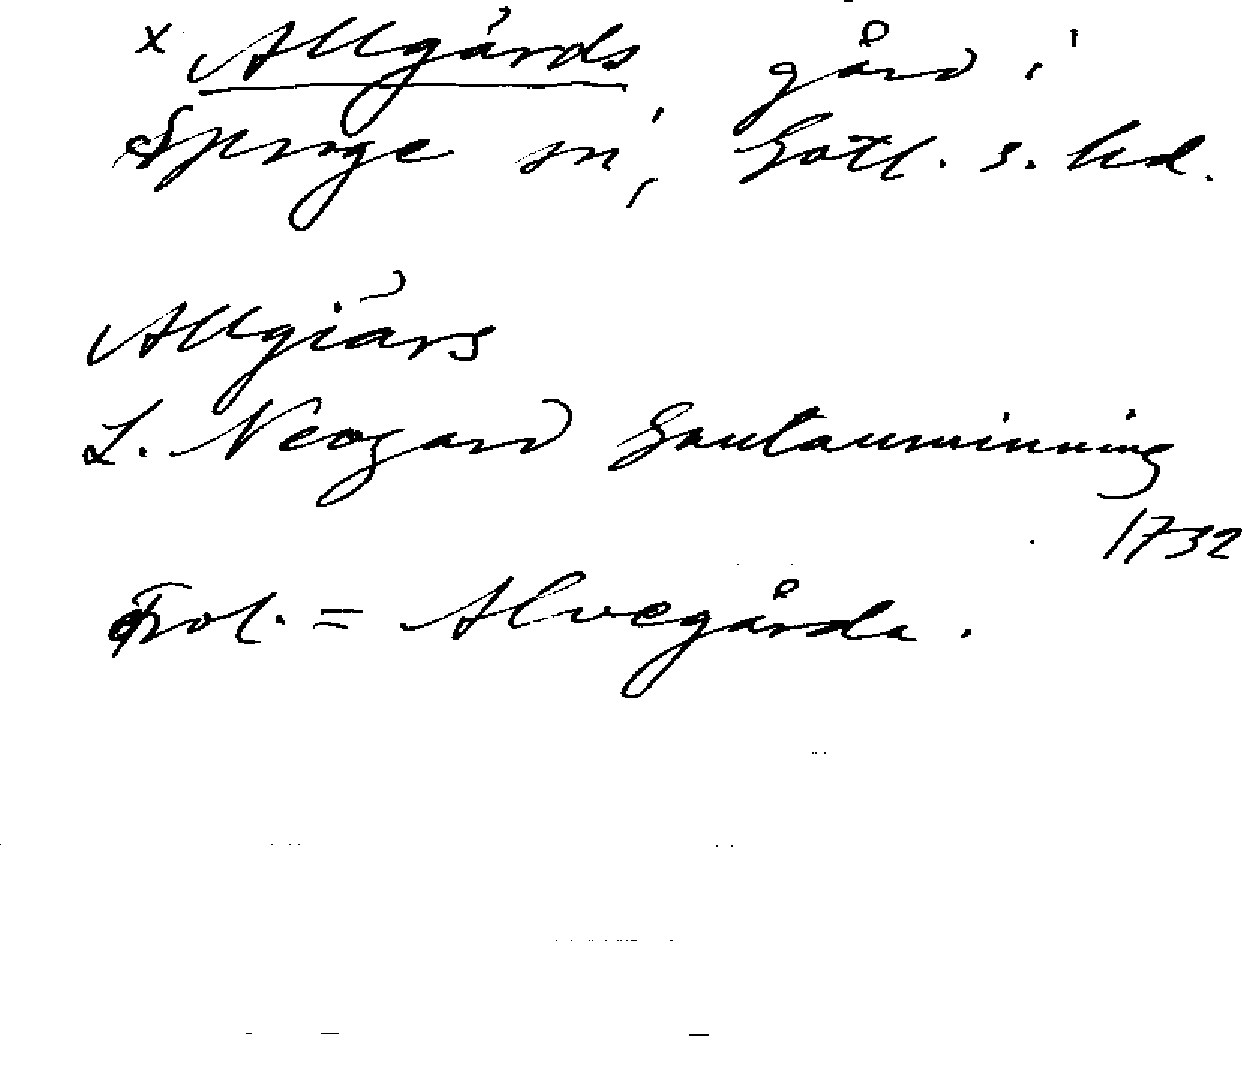 x Allgårds gård i
Sproge sn, Gotl. s. hd.
Allgiårs
L. Neogard Gautauminning
1732
Trol. = Alvegårda.